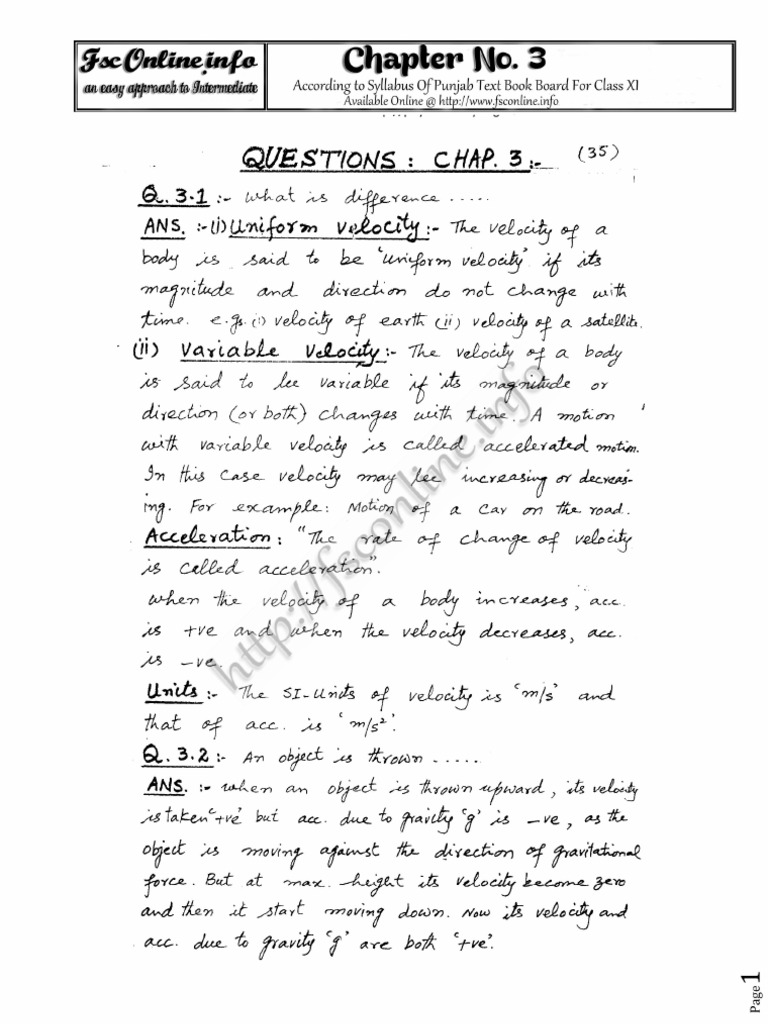 FscOnline.info
an easy approach to Intermediate
Chapter No. 3
According to Syllabus Of Punjab Text Book Board For Class XI
Available Online @ http://www.fsconline.info
QUESTIONS : CHAP. 3 :- (35)
Q. 3.1 :- What is difference .....
ANS. :- (i) Uniform velocity :- The velocity of a
body is said to be 'uniform velocity' if its
magnitude and direction do not change with
time. e.gs. (i) velocity of earth (ii) velocity of a satellite.
(ii) Variable Velocity :- The velocity of a body
is said to be variable if its magnitude or
direction (or both) changes with time. A motion
with variable velocity is called accelerated motion.
In this case velocity may be increasing or decreas-
ing. For example: Motion of a car on the road.
Acceleration : "The rate of change of velocity
is called acceleration".
when the velocity of a body increases, acc.
is +ve and when the velocity decreases, acc.
is -ve.
Units :- The SI-Units of velocity is 'm/s' and
that of acc. is 'm/s²'.
Q. 3.2 :- An object is thrown .....
ANS. :- when an object is thrown upward, its velocity
is taken '+ve' but acc. due to gravity 'g' is -ve, as the
object is moving against the direction of gravitational
force. But at max. height its velocity become zero
and then it start moving down. Now its velocity and
acc. due to gravity 'g' are both '+ve'.
http://fsconline.info
Page 1